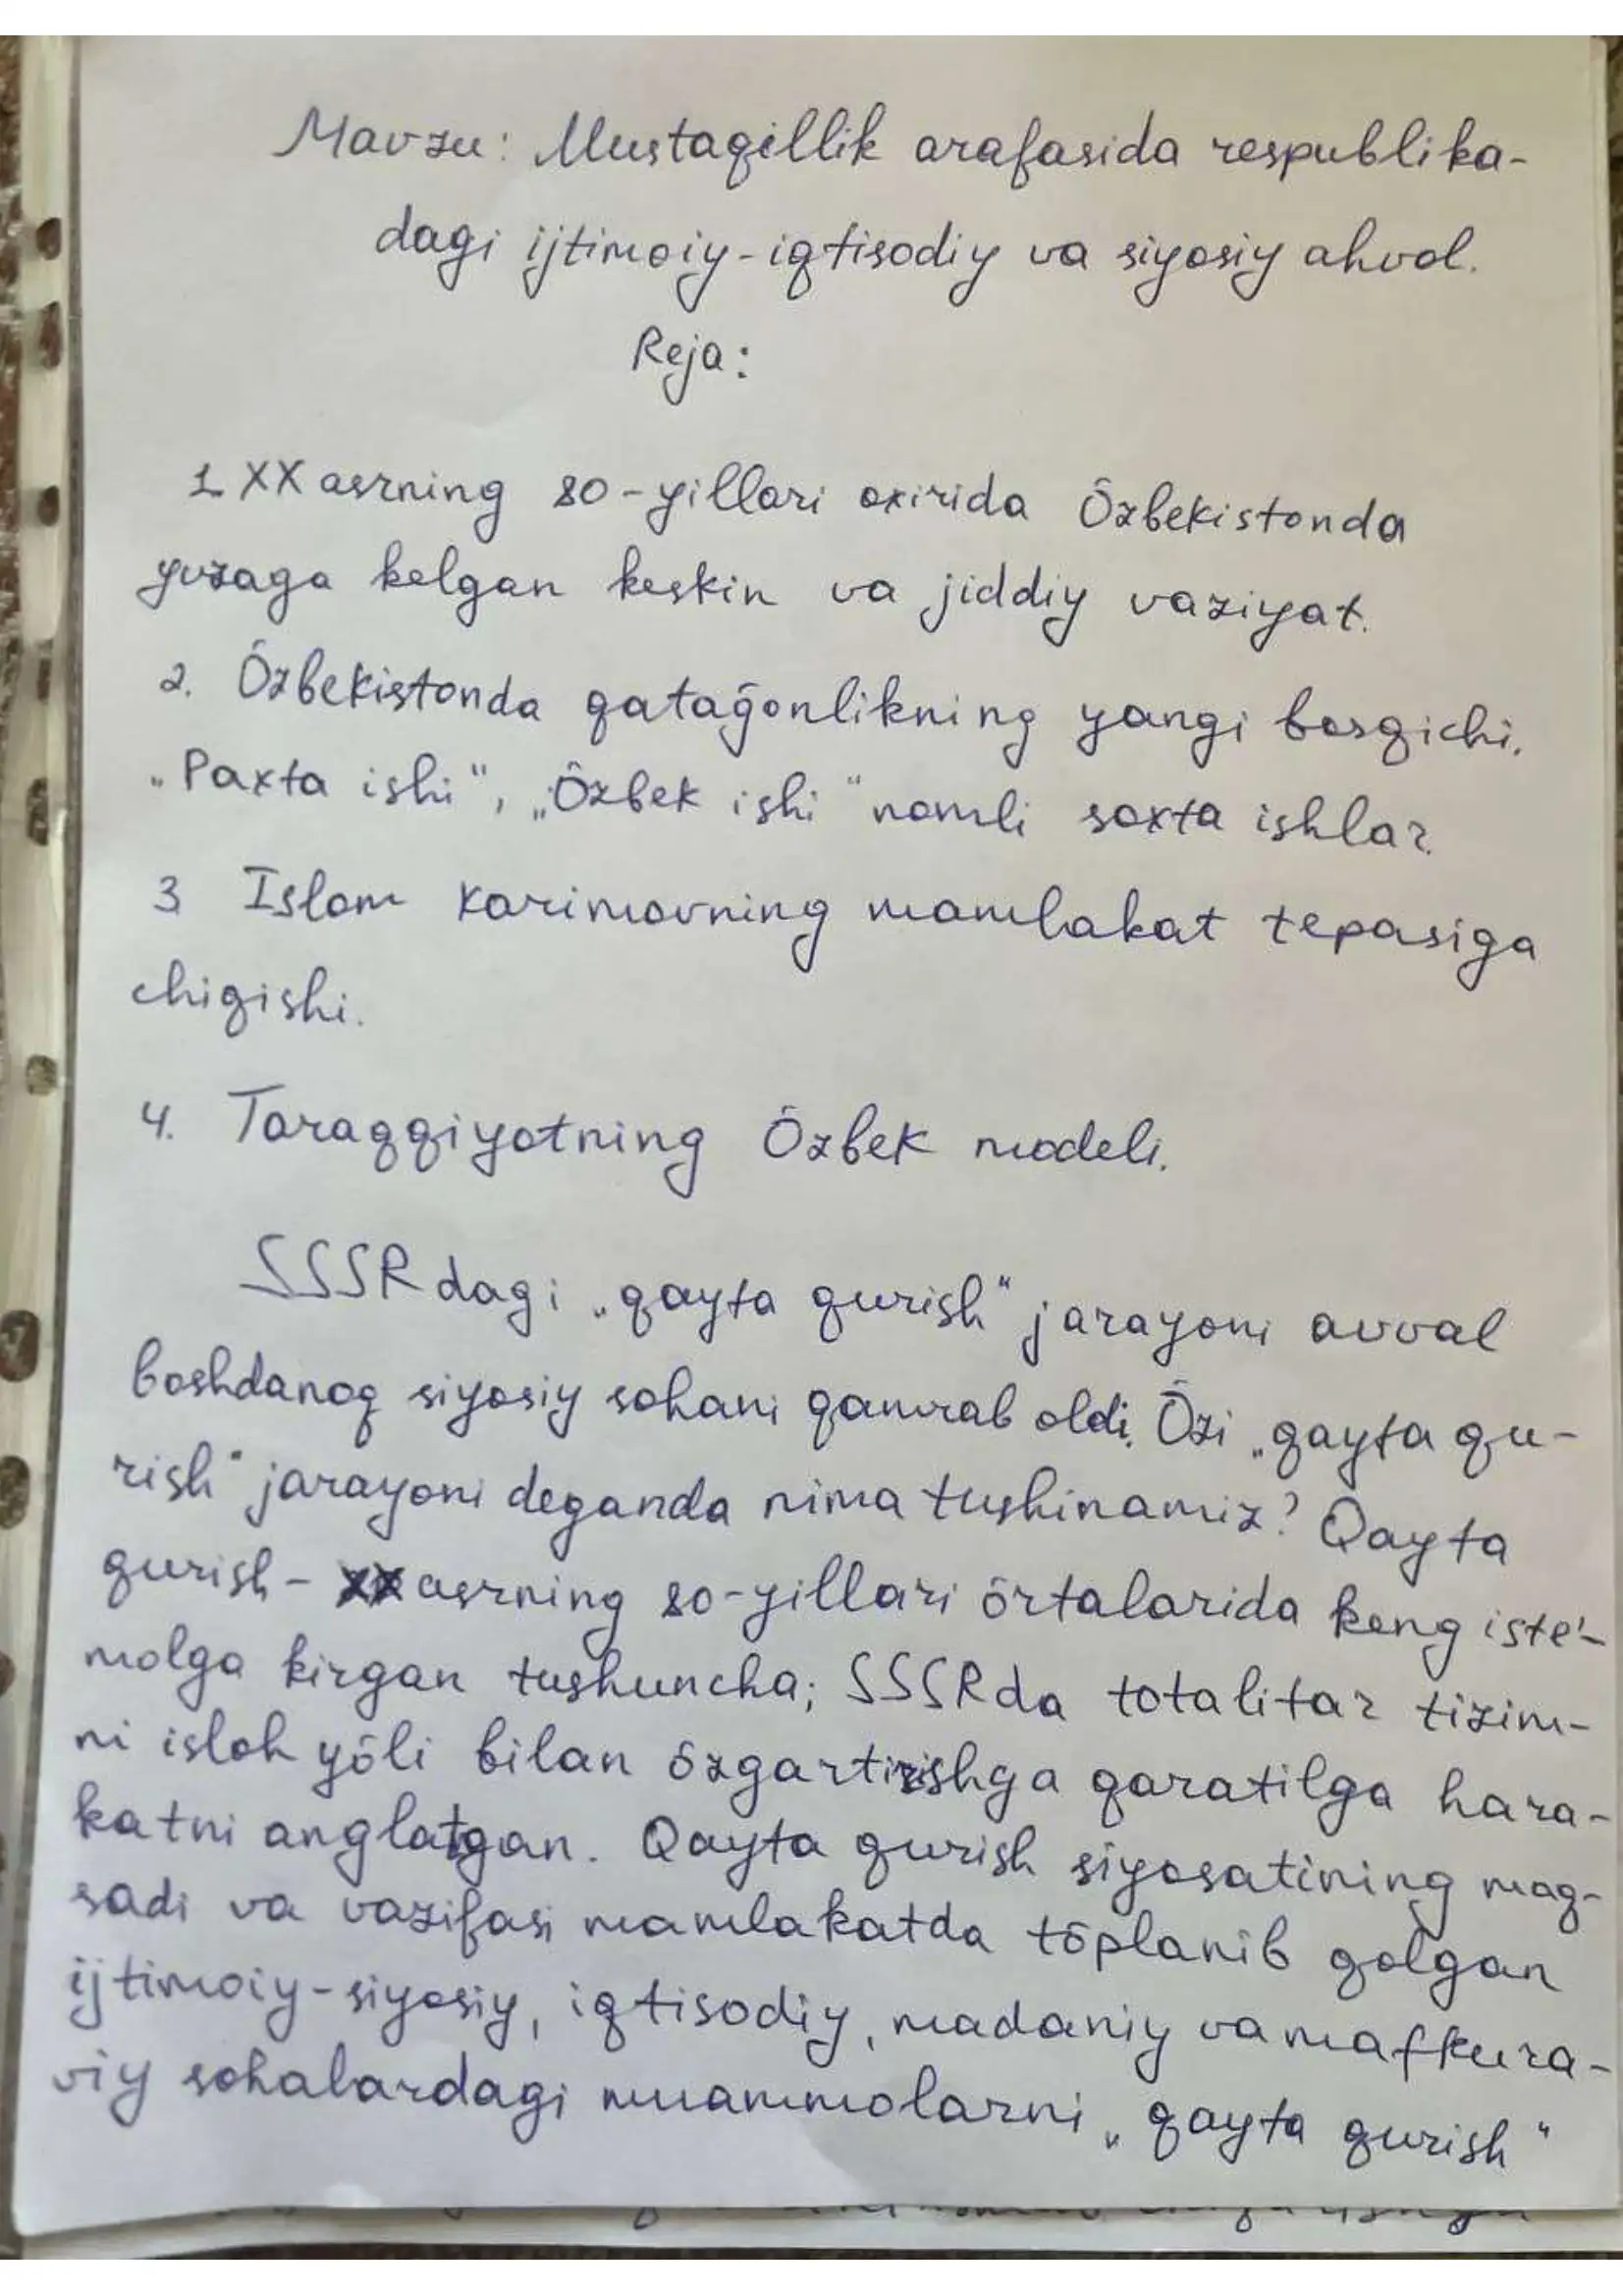 Mavzu: Mustaqillik arafasida respublika-
dagi ijtimoiy-iqtisodiy va siyosiy ahvol.
Reja:
1 XX asrning 80-yillari oxirida Õzbekistonda
yuzaga kelgan keskin va jiddiy vaziyat.
2. Õzbekistonda qatag̃onlikning yangi bosqichi.
„Paxta ishi“, „Õzbek ishi“ nomli soxta ishlar.
3 Islom Karimovning mamlakat tepasiga
chiqishi.
4. Taraqqiyotning Õzbek modeli.
SSSRdagi „qayta qurish“ jarayoni avval
boshdanoq siyosiy sohani qamrab oldi. Õzi „qayta qu-
rish“ jarayoni deganda nima tushinamiz? Qayta
qurish - XX asrning 80-yillari õrtalarida keng iste'-
molga kirgan tushuncha; SSSRda totalitar tizim-
ni isloh yõli bilan õzgartirishga qaratilga hara-
katni anglatgan. Qayta qurish siyosatining maq-
sadi va vazifasi mamlakatda tõplanib qolgan
ijtimoiy-siyosiy, iqtisodiy, madaniy va mafkura-
viy sohalardagi muammolarni „qayta qurish“